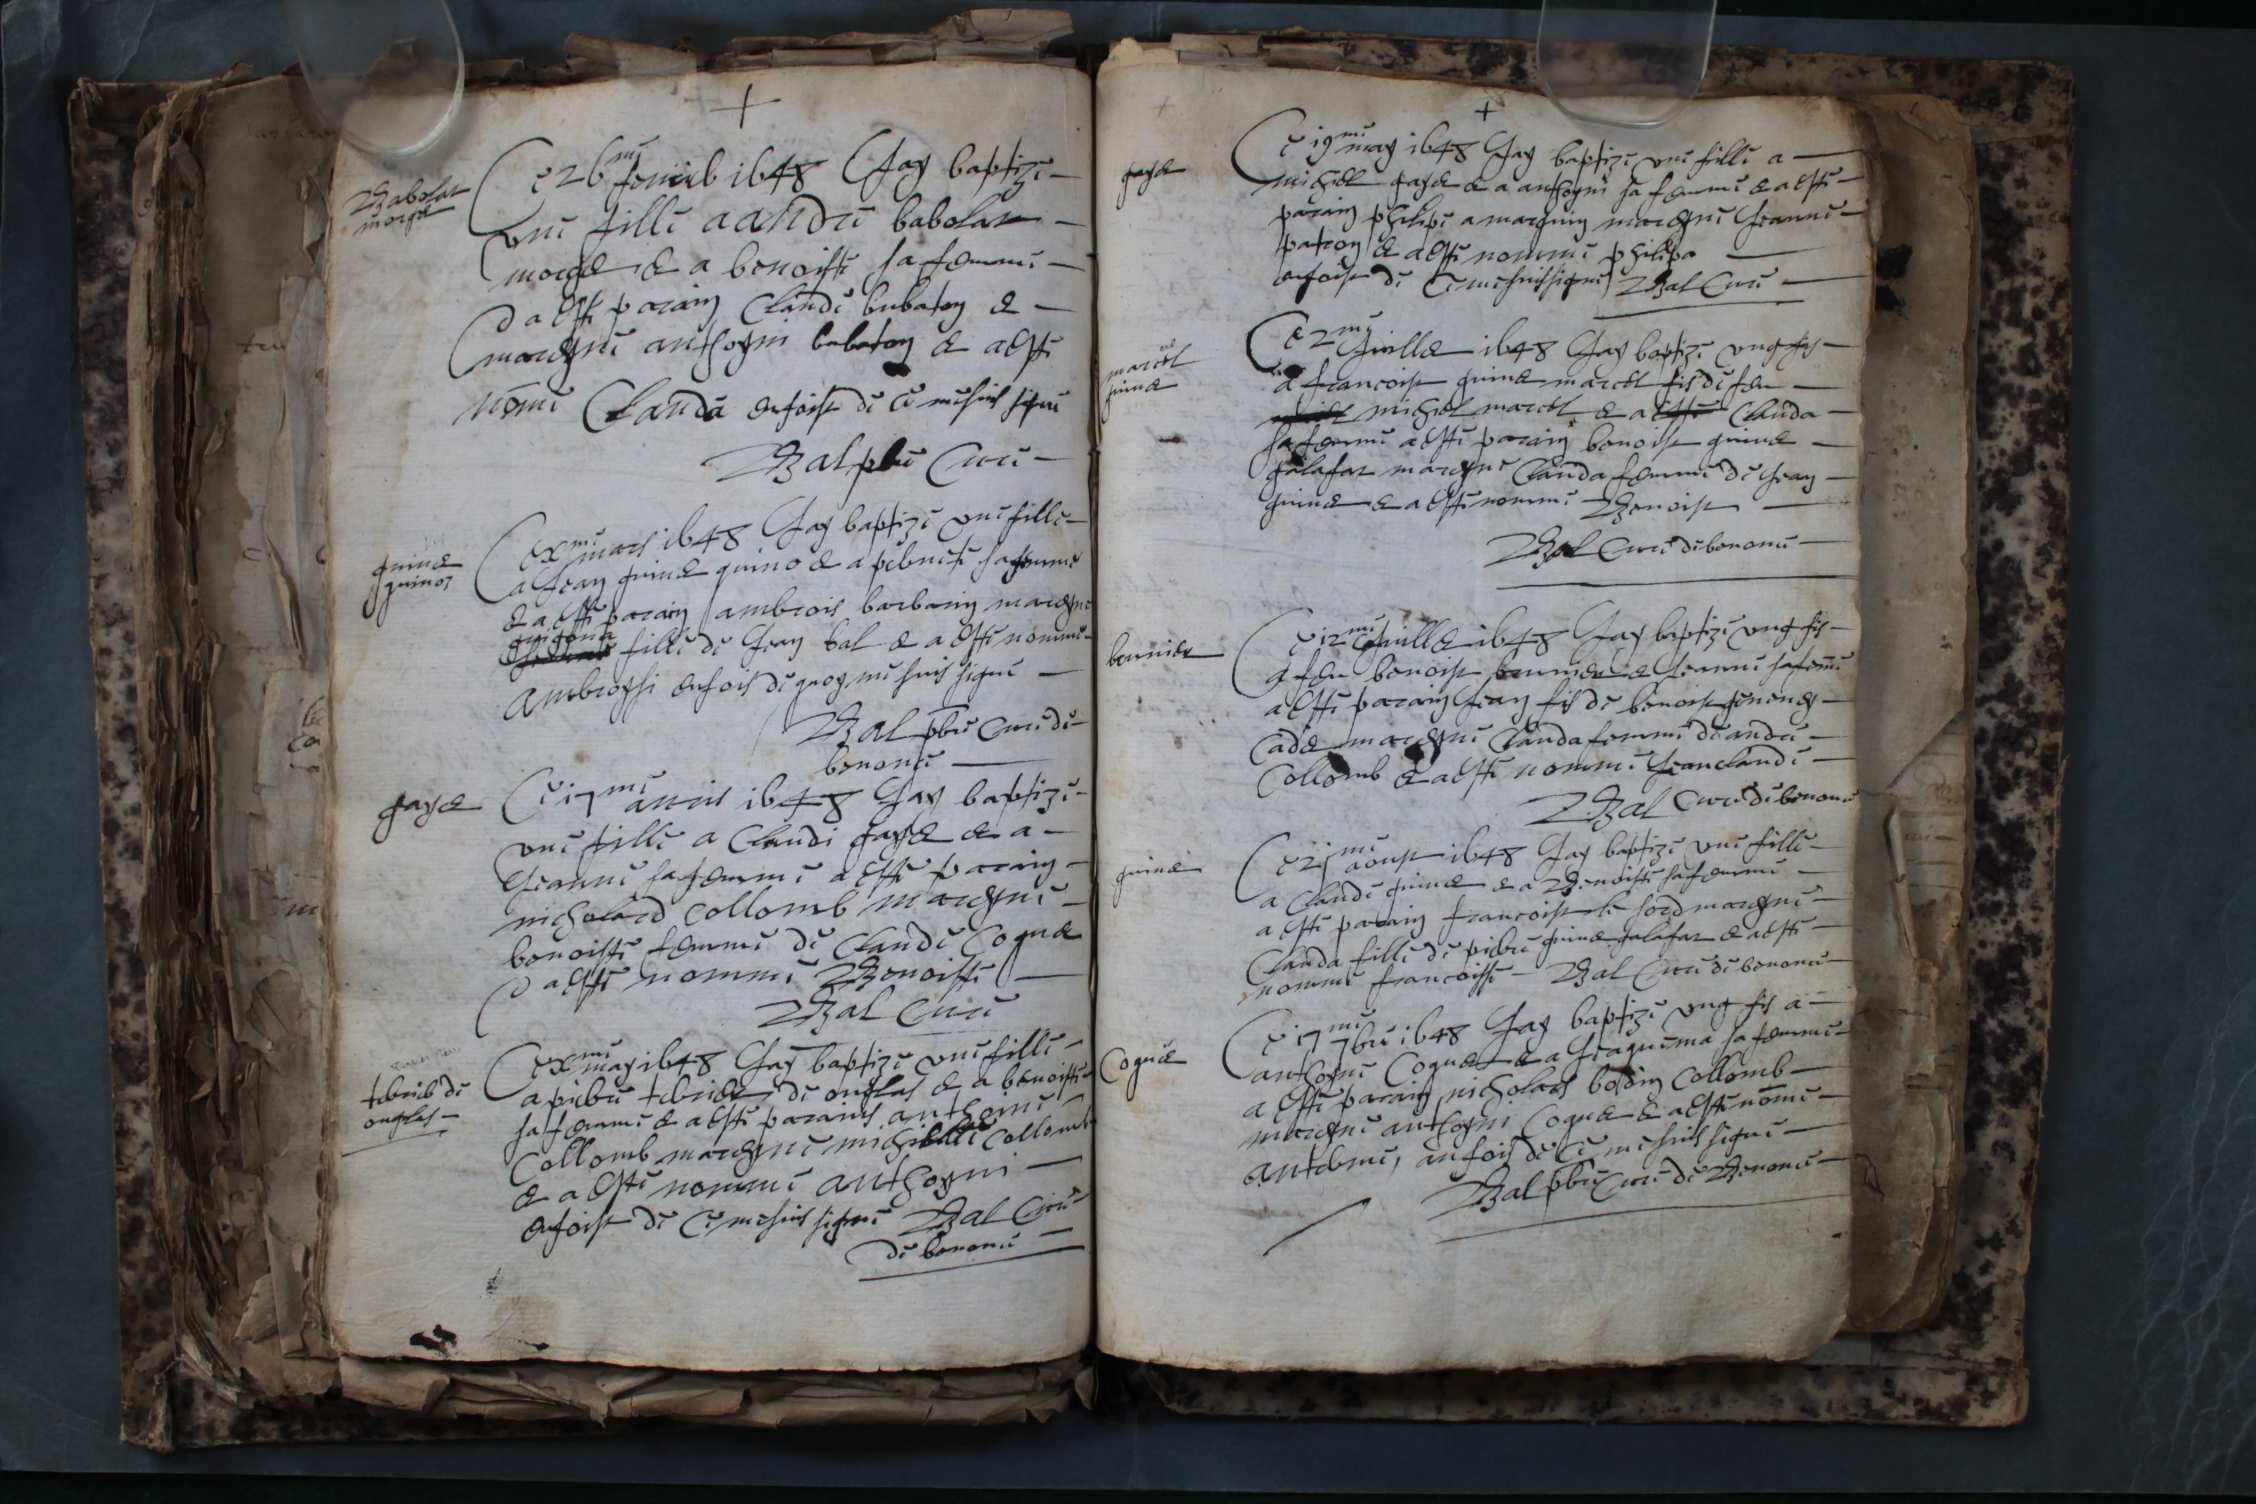 Babolat
morge
Ce 26me feuvrie 1648 Jay baptize
une fille a andre babolat
morge & a benoiste sa femme
& a este parain Claude bubaton &
marayne anthoyni bubaton & a este
nōme Clauda en foist de ce me suis signe
Bal pbre Cure
guine
guinot
Ce xme mars 1648 Jay baptize une fille
a Jean guine guino & a pernete sa femme
& a este parain ambrois barbarin marayne
guigona
fille de Jean bal & a este nomme
ambroysi en fois de quoy me suis signe
Bal pbre Cure de
bonono
gaye
Ce 17me avris 1648 Jay baptize
une fille a Claude gaye & a
Jeanne sa femme a este parain
nicholard Collomb marayne
benoiste femme de Claude Cogne
& a este nomme Benoiste
Bal Cure
terrier de
ongles
Ce xme may 1648 Jay baptize une fille
a pierre terrier de ongles & a benoiste
sa femme & a este parains anthoine
Collomb marayne michelle Collomb
& a este nomme anthoyni
en foist de ce me suis signe Bal Cure
de bonono
+
gaye
Ce 19me may 1648 Jay baptize une fille a
michel gaye & a anthoyni sa femme & a este
parain philipe amarguin marayne Jeanne
patron & a este nomme philipa
en foist de ce me suis signe Bal Cure
marcel
guine
Ce 2me Juille 1648 Jay baptize ung fis
a francoist guine marcel fis de feu
michel marcel & a Clauda
sa femme a este parain benoist guine
galafar marayne Clauda femme de Jean
guine & a este nomme Benoist
Bal Cure de bonono
bernier
Ce 12me Juille 1648 Jay baptize ung fis
a feu benoist bernier & Jeanne sa feme
a este parain Jean fis de benoist
cade marayne Clauda femme de andre
Collomb & a este nomme Jean claude
Bal Cure de bonono
guine
Ce 21me aoust 1648 Jay baptize une fille
a Claude guine & a Benoiste sa femme
a este parain francoist le sord marayne
Clauda fille de pierre guine galafar & a este
nomme francoisse Bal Cure de bonono
Cogne
Ce 17me 7bre 1648 Jay baptize ung fis a
anthoyne Cogne & a Jaquema sa femme
a este parain nicholars bodin Collomb
marayne anthoyni Cogne & a este nōme
anthoine, en fois de ce me suis signe
Bal pbre Cure de Bonono